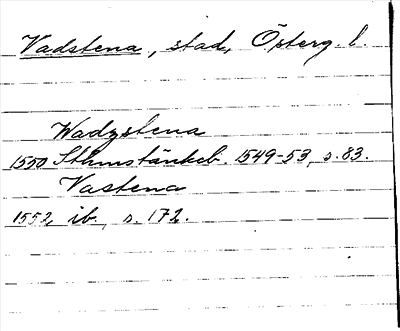 Vadstena, stad, Österg. l.
Wadzstena
1550 Stumstänkeb. 1549-53, s. 83.
Vastena
1552, ib., s. 172.